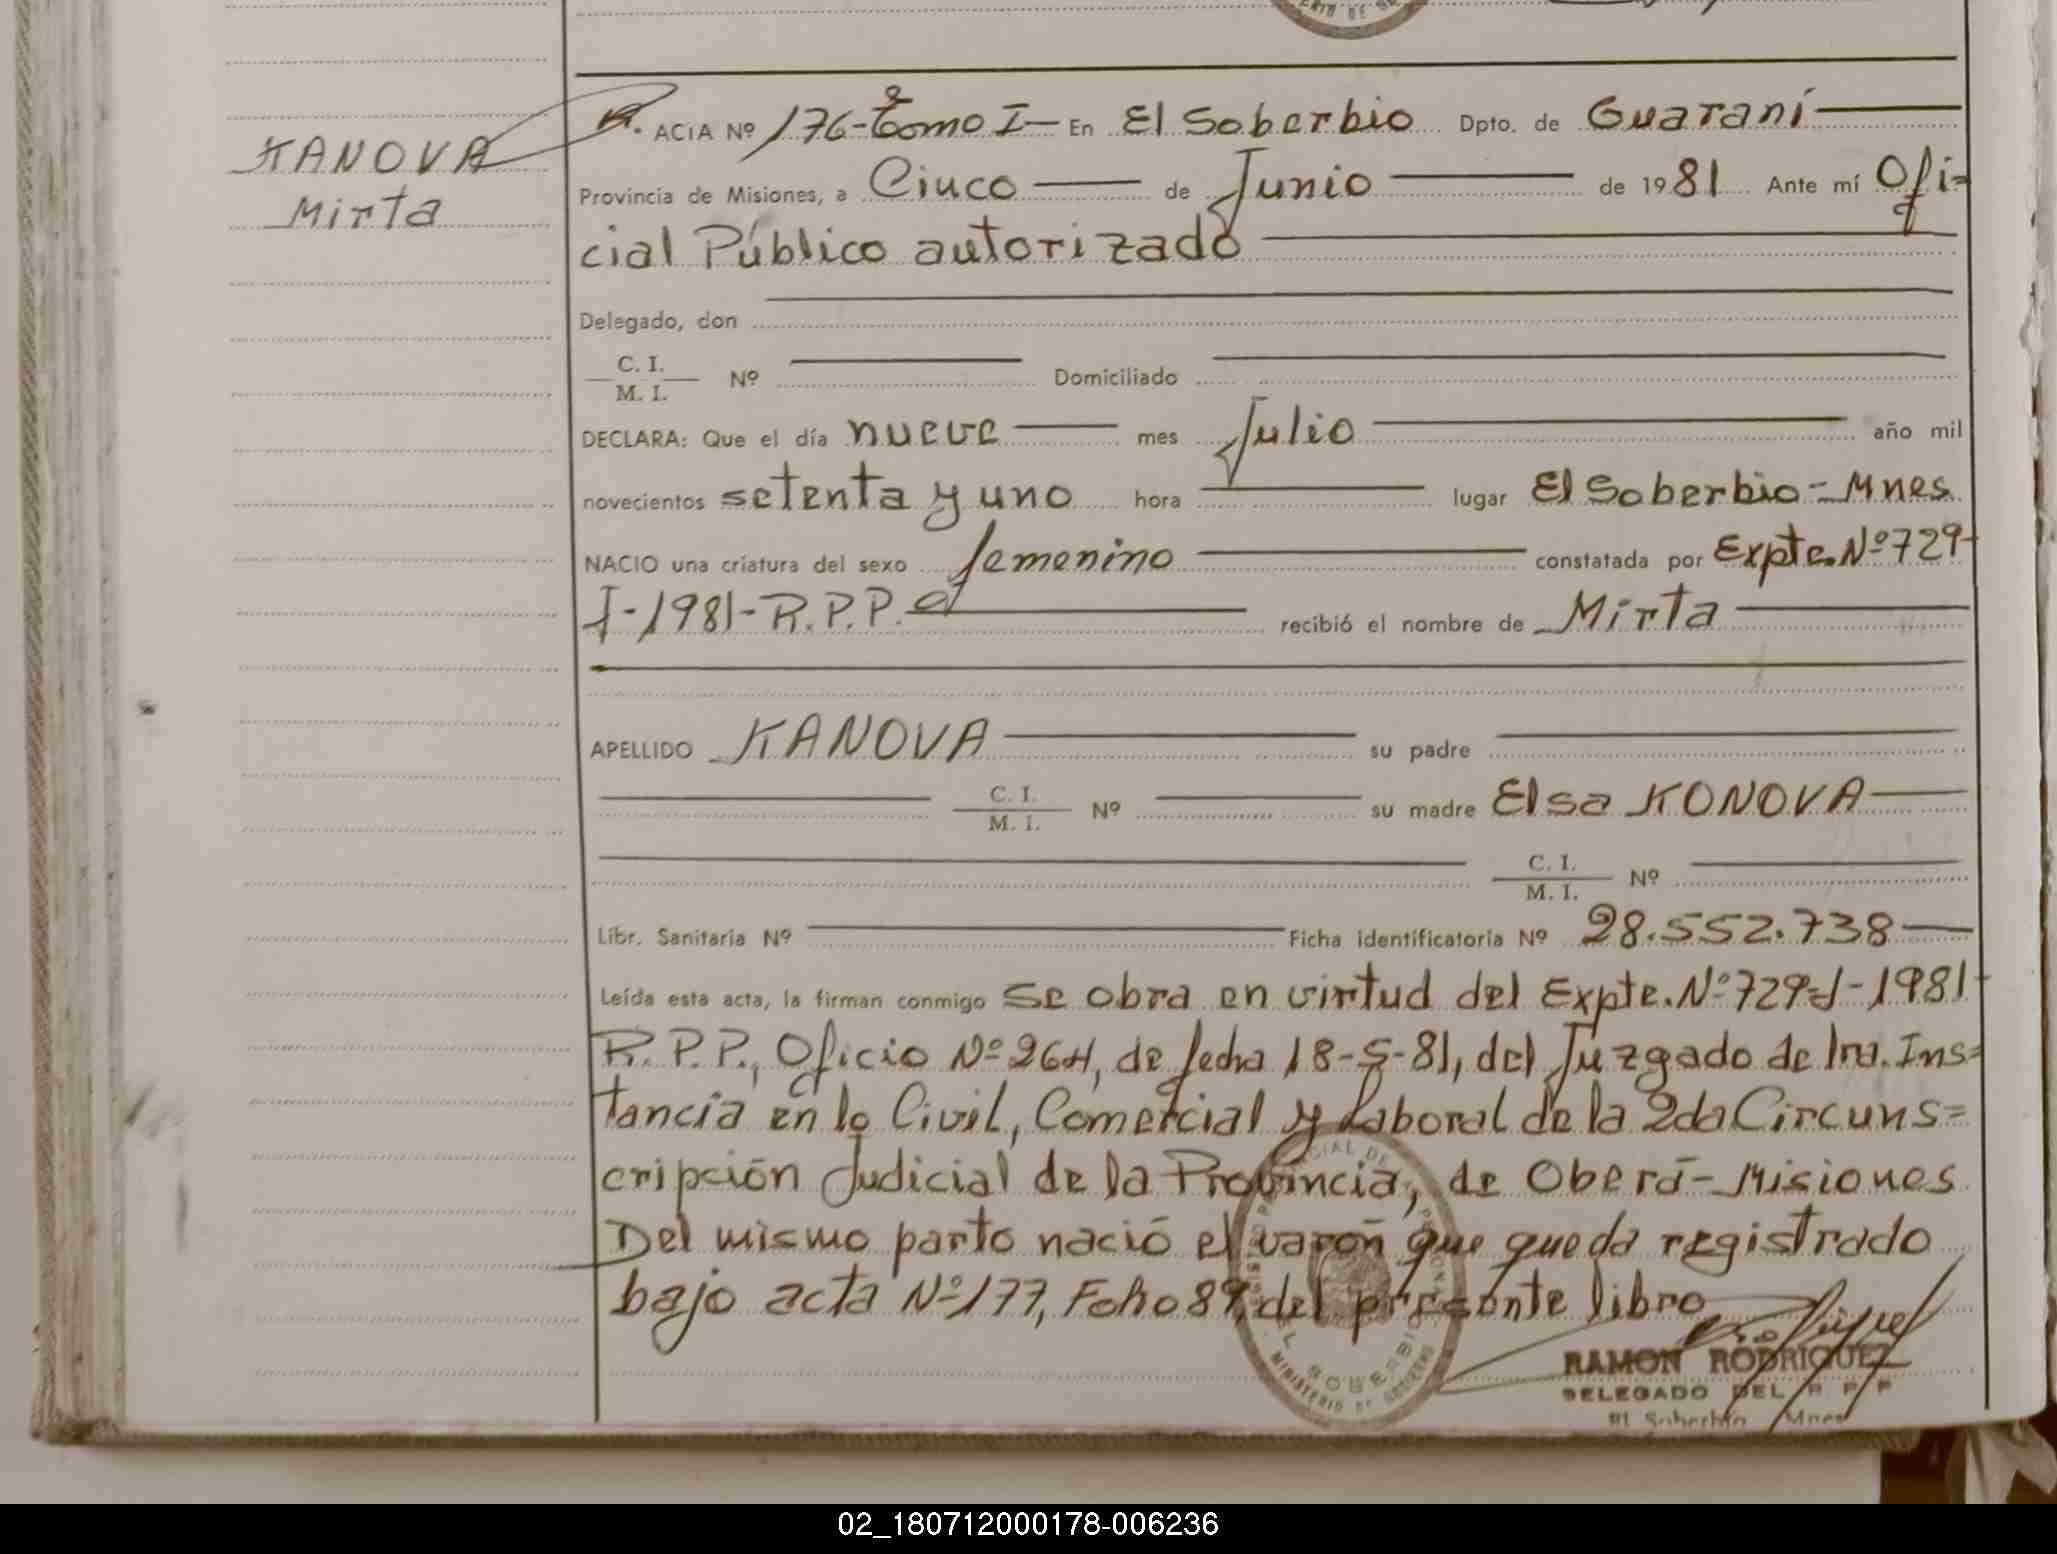 KANOVA
Mirta
ACTA Nº 176-Tomo I- En El Soberbio Dpto. de Guaraní
Provincia de Misiones, a Cinco de Junio de 1981 Ante mí Ofi=
cial Público autorizado
Delegado, don
C. I.
M. I. Nº Domiciliado
DECLARA: Que el día nueve mes Julio año mil
novecientos setenta y uno hora lugar El Soberbio-Mnes
NACIO una criatura del sexo femenino constatada por Expte. Nº 729-
J-1981-R.P.P. recibió el nombre de Mirta
APELLIDO KANOVA su padre
C. I.
M. I. Nº su madre Elsa KONOVA
C. I.
M. I. Nº
Libr. Sanitaria Nº Ficha identificatoria Nº 28.552.738
Leída esta acta, la firman conmigo Se obra en virtud del Expte. Nº 729-J-1981-
R.P.P., Oficio Nº 264, de fecha 18-5-81, del Juzgado de 1ra. Ins=
tancia en lo Civil, Comercial y Laboral de la 2da Circuns=
cripción Judicial de la Provincia, de Oberá-Misiones
Del mismo parto nació el varón que queda registrado
bajo acta Nº 177, Folio 89, del presente libro
EL SOBERBIO
MINISTERIO DE GOBIERNO
RAMON RODRIGUEZ
DELEGADO DEL R P P
El Soberbio Mnes
02_180712000178-006236